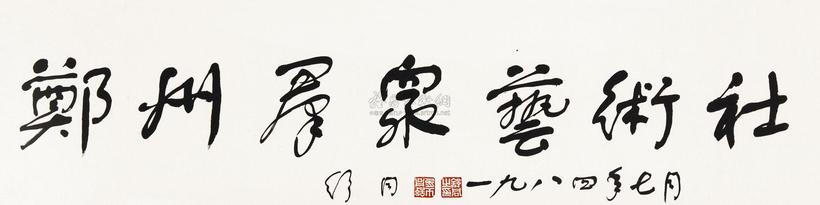 鄭州羣衆藝術社
一九八四年七月
舒同